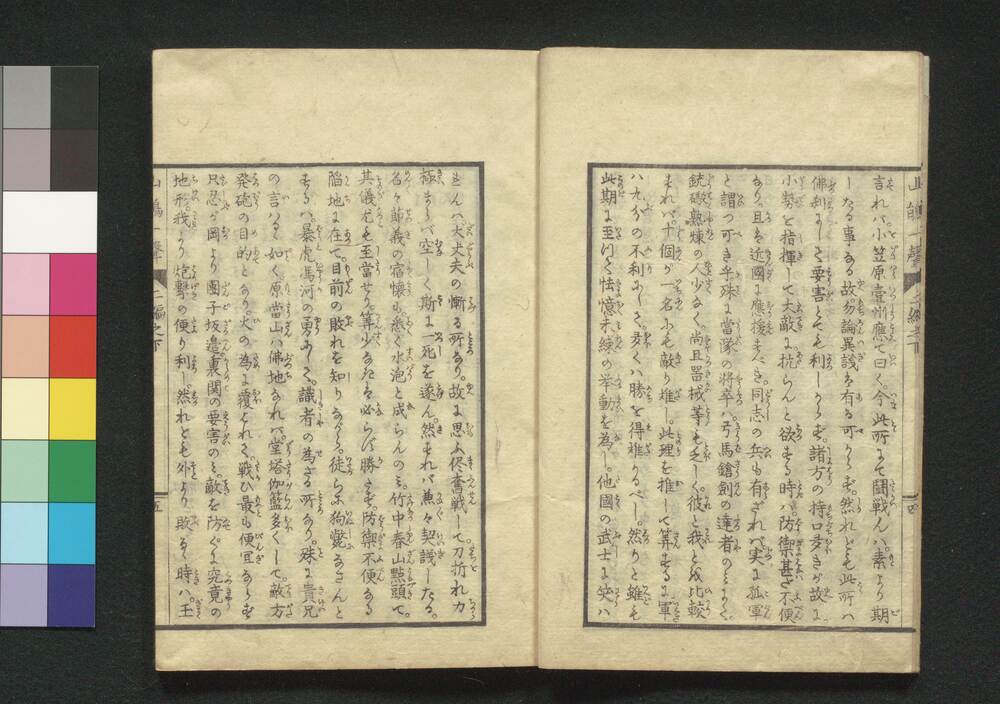 言れバ小笠原壹州應て曰く。今此所にて闘戦ハ。素より期
したる事なる故。勿論異議ハ有る可からず。然れども此所ハ
佛刹にして要害とても利しからず。諸方の持口多きが故に
小勢を指揮して大敵に抗らんと欲する時ハ。防禦甚だ不便
なり。且近國に應援すべき。同志の兵も有ざれバ実に孤軍
と謂つ可き乎殊に當隊の將卒ハ弓馬鎗劍の達者のミ多く。
銃礟熟煉の人少なく。尚且器械等も乏しく。彼と我とを比較
すれバ十個が一名にも敵り難し。此理を推して算する軍
ハ九分の不利にして。多くハ勝を得難かるべし。然りと雖も
此期に至つて怯憶未練の举動を為し。他國の武士に笑ハ
れんハ大丈夫の慚る所なり。故に思ふ侭奮戦して刀折れ力
極まらバ空しく斯に一死を遂ん。然すれバ兼々契議したる。
名々節義の宿懐も悉く水泡と成らんのミ。竹中春山點頭て。
其儀尤も至當せり算少なき者必らず勝たず。防禦不便なる
陥地に在て。目前の敗れを知りながら。徒らに狗斃なさんと
するハ。暴虎馬河の勇にして。識者の為ざる所なり。殊に貴兄
の言るゝ如く原當山ハ佛地なれバ。堂塔伽藍多くして。敵方
発砲の目的となり。火の為に覆とれて。戦ひ最も便宜ならず
只忍が岡より團子坂邉裏関の要害のミ。敵を防ぐに究竟の
地形我より炮撃の便り利し。然れども外より敗るゝ時ハ。王
二編之下
五